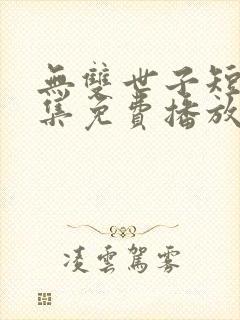 無雙世子短
集免費播放
凌雲駕霧